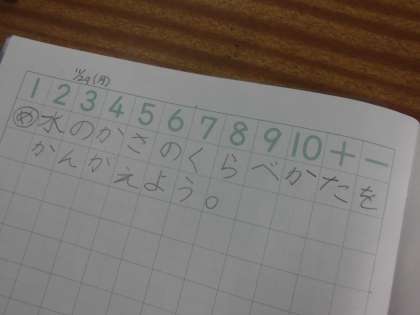 11/29(月)
1 2 3 4 5 6 7 8 9 10 + -
め 水のかさのくらべかたを
かんがえよう。